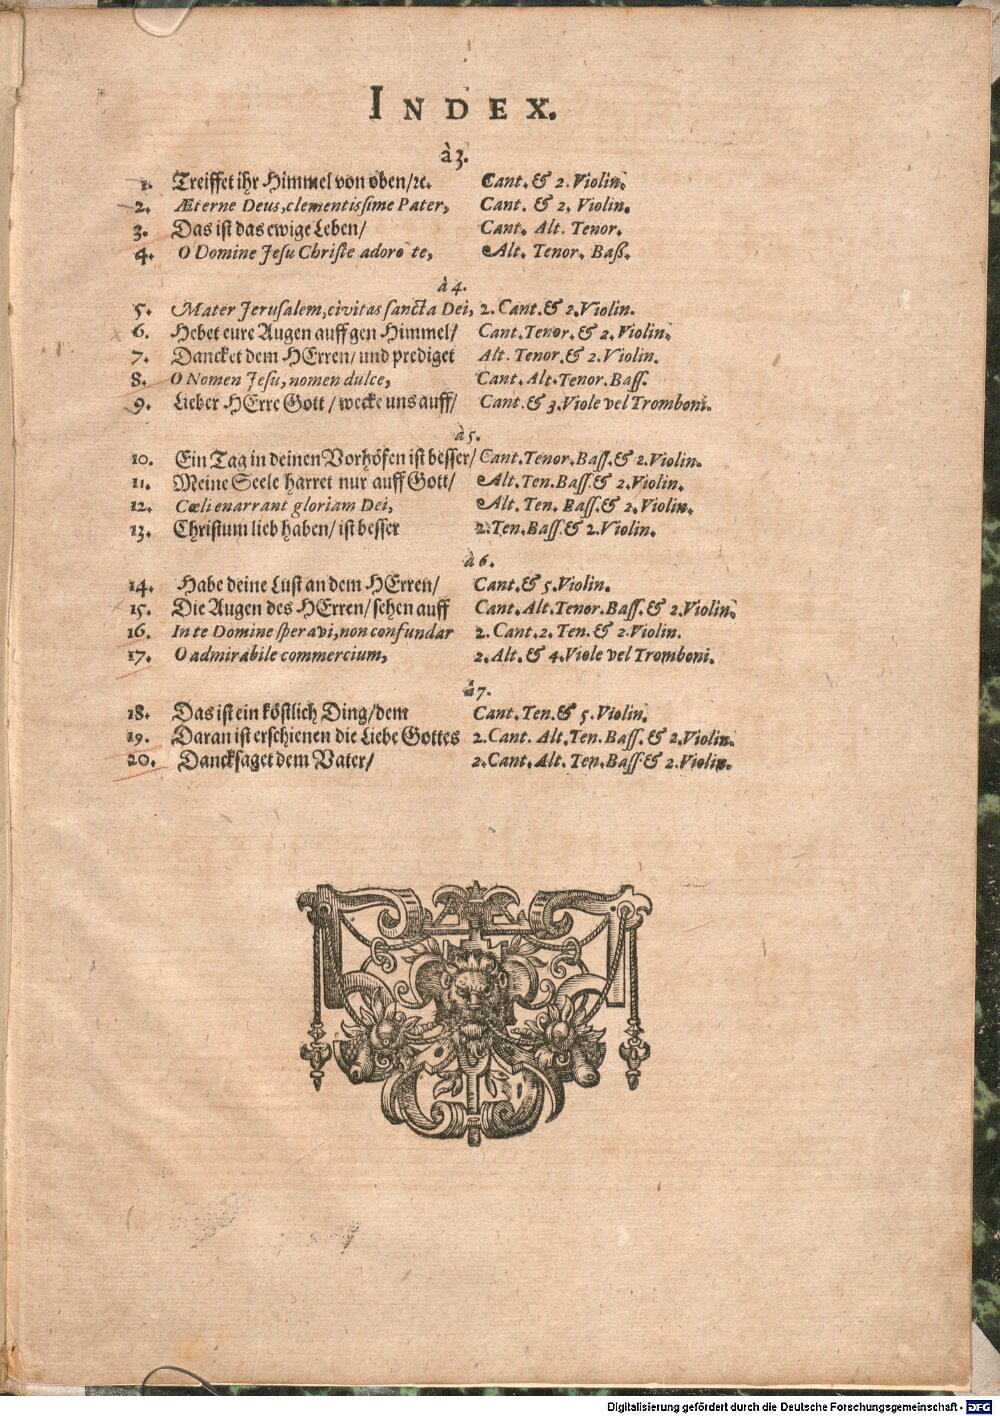 INDEX.
à 3.
1. Treiffet ihr Himmel von oben/ ꝛc. Cant. & 2. Violin.
2. Æterne Deus, clementissime Pater, Cant. & 2. Violin.
3. Das ist das ewige Leben/ Cant. Alt. Tenor.
4. O Domine Jesu Christe adoro te, Alt. Tenor. Baß.
à 4.
5. Mater Jerusalem, civitas sancta Dei, 2. Cant. & 2. Violin.
6. Hebet eure Augen auff gen Himmel/ Cant. Tenor. & 2. Violin.
7. Dancket dem HErren/ und prediget Alt. Tenor. & 2. Violin.
8. O Nomen Jesu, nomen dulce, Cant. Alt. Tenor. Bass.
9. Lieber HErre Gott/ wecke uns auff/ Cant. & 3. Viole vel Tromboni.
à 5.
10. Ein Tag in deinen Vorhöfen ist besser/ Cant. Tenor. Bass. & 2. Violin.
11. Meine Seele harret nur auff Gott/ Alt. Ten. Bass. & 2. Violin.
12. Cœli enarrant gloriam Dei, Alt. Ten. Bass. & 2. Violin.
13. Christum lieb haben/ ist besser 2. Ten. Bass. & 2. Violin.
à 6.
14. Habe deine Lust an dem HErren/ Cant. & 5. Violin.
15. Die Augen des HErren/ sehen auff Cant. Alt. Tenor. Bass. & 2. Violin.
16. In te Domine speravi, non confundar 2. Cant. 2. Ten. & 2. Violin.
17. O admirabile commercium, 2. Alt. & 4. Viole vel Tromboni.
à 7.
18. Das ist ein köstlich Ding/ dem Cant. Ten. & 5. Violin.
19. Daran ist erschienen die Liebe Gottes 2. Cant. Alt. Ten. Bass. & 2. Violin.
20. Dancksaget dem Vater/ 2. Cant. Alt. Ten. Bass. & 2. Violin.
Digitalisierung gefördert durch die Deutsche Forschungsgemeinschaft - DFG